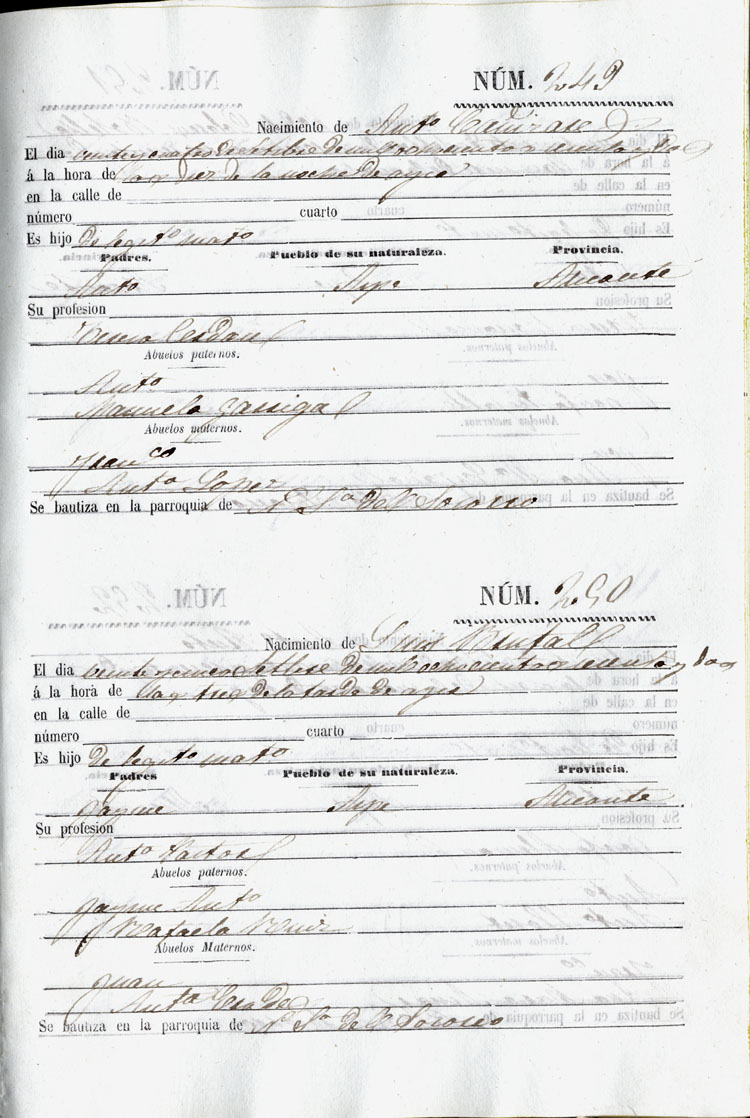 NÚM. 249
Nacimiento de Antº Cañizares
El dia veinte y cuatro Octubre de mil ochocientos sesenta y dos
á la hora de las diez de la noche de ayer
en la calle de
número cuarto
Es hijo de legitº matº
Padres. Pueblo de su naturaleza. Provincia.
Antº Aspe Alicante
Su profesion
Teresa Cerdan
Abuelos paternos.
Antº
Manuela
Abuelos maternos.
Francco
Antª Lopez
Se bautiza en la parroquia de N. Sª del Socorro
NÚM. 250
Nacimiento de
El dia veinte y cinco de mil ochocientos sesenta y dos
á la hora de las tres de la tarde de ayer
en la calle de
número cuarto
Es hijo de legitº matº
Padres Pueblo de su naturaleza. Provincia.
Jayme Aspe Alicante
Su profesion
Antª
Abuelos paternos.
Jayme Antº
Rafaela
Abuelos Maternos.
Juan
Antª
Se bautiza en la parroquia de N. Sª del Socorro